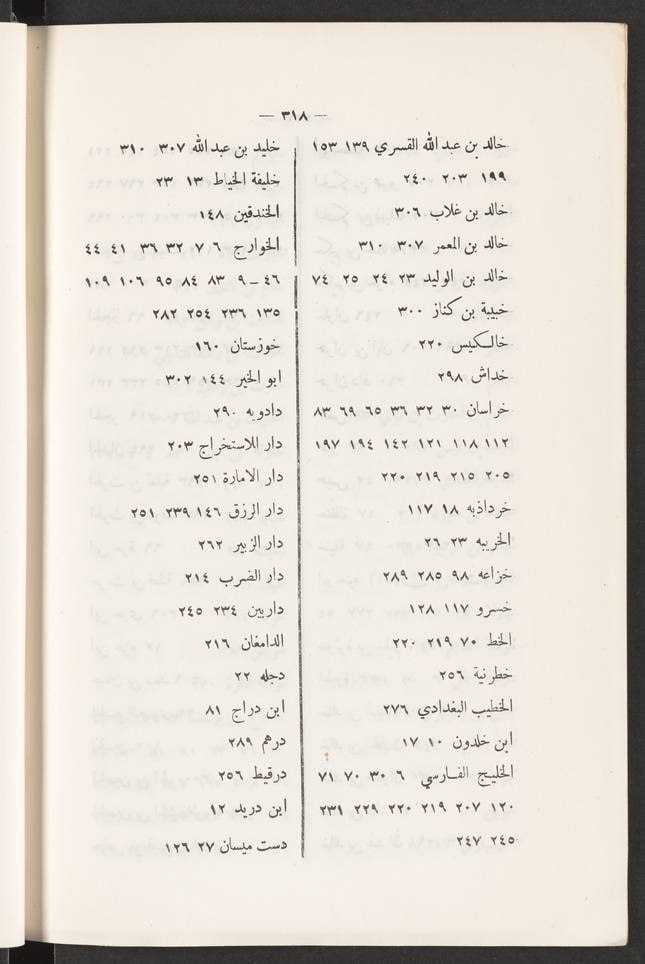 — ٣١٨ —
خالد بن عبد الله القسري ١٣٩ ١٥٣
١٩٩ ٢٠٣ ٢٤٠
خالد بن غلاب ٣٠٦
خالد بن المعمر ٣٠٧ ٣١٠
خالد بن الوليد ٢٣ ٢٤ ٢٥ ٧٤
خبيبة بن كناز ٣٠٠
خالكيس ٢٢٠
خداش ٢٩٨
خراسان ٣٠ ٣٢ ٣٦ ٦٥ ٦٩ ٨٣
١١٢ ١١٨ ١٢١ ١٤٢ ١٩٤ ١٩٧
٢٠٥ ٢١٥ ٢١٩ ٢٢٠
خرداذبه ١٨ ١١٧
الخريبه ٢٣ ٢٦
خزاعه ٩٨ ٢٨٥ ٢٨٩
خسرو ١١٧ ١٢٨
الخط ٧٠ ٢١٩ ٢٢٠
خطرنية ٢٥٦
الخطيب البغدادي ٢٧٦
ابن خلدون ١٠ ١٧
الخليج الفارسي ٦ ٣٠ ٧٠ ٧١
١٢٠ ٢٠٧ ٢١٩ ٢٢٠ ٢٢٩ ٢٣٩
٢٤٥ ٢٤٧
خليد بن عبد الله ٣٠٧ ٣١٠
خليفة الخياط ١٣ ٢٣
الخندقين ١٤٨
الخوارج ٦ ٧ ٣٢ ٣٦ ٤١ ٤٤
٤٦ – ٩ ٨٣ ٨٤ ٩٥ ١٠٦ ١٠٩
١٣٥ ٢٣٦ ٢٥٤ ٢٨٢
خوزستان ١٦٠
ابو الخير ١٤٤ ٣٠٢
دادويه ٢٩٠
دار للاستخراج ٢٠٣
دار الامارة ٢٥١
دار الرزق ١٤٦ ٢٣٩ ٢٥١
دار الزبير ٢٦٢
دار الضرب ٢١٤
داربين ٢٣٤ ٢٤٥
الدامغان ٢١٦
دجله ٢٢
ابن دراج ٨١
درهم ٢٨٩
درقيط ٢٥٦
ابن دريد ١٢
دست ميسان ٢٧ ١٢٦